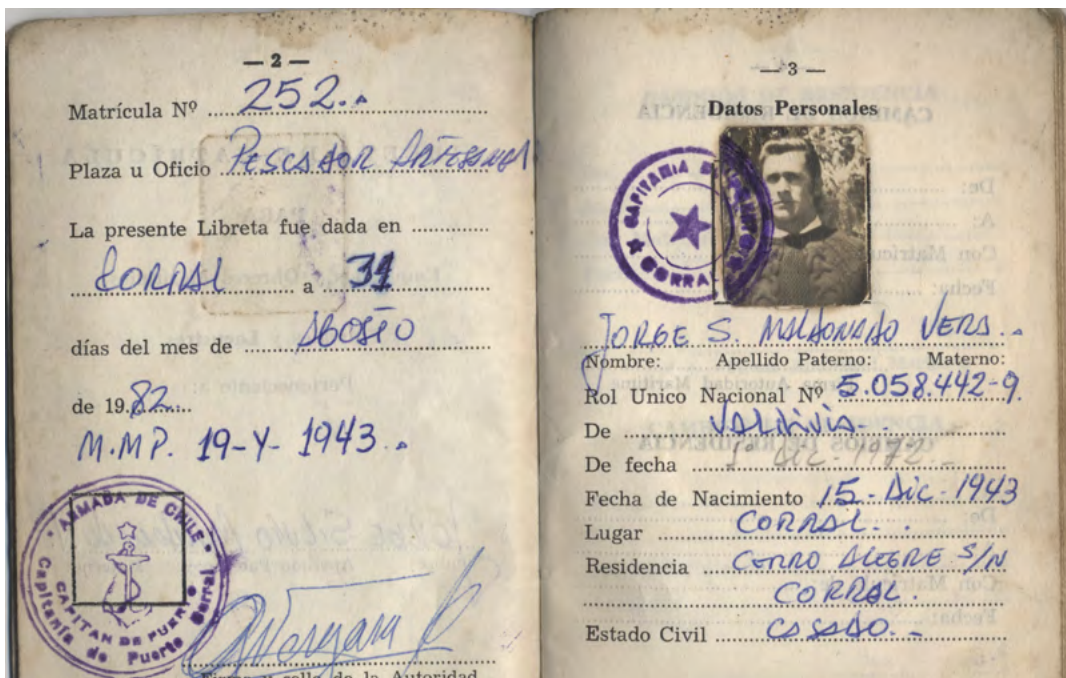 — 2 —
Matrícula Nº 252..
Plaza u Oficio PESCADOR ARTESANAL
La presente Libreta fue dada en
CORRAL a 31
días del mes de AGOSTO
de 1982.
M.M.P. 19-Y- 1943.
ARMADA DE CHILE
CAPITAN DE PUERTO
Capitanía de Puerto Corral
Firma y sello de la Autoridad
— 3 —
Datos Personales
CAPITANIA DE PUERTO
CORRAL
JORGE S. MALDONADO VERA.
Nombre: Apellido Paterno: Materno:
Rol Unico Nacional Nº 5.058.442-9
De VALDIVIA-
De fecha 1º DIC - 1972 -
Fecha de Nacimiento 15-Dic-1943
Lugar CORRAL.
Residencia CERRO ALEGRE S/N
CORRAL.
Estado Civil CASADO.-